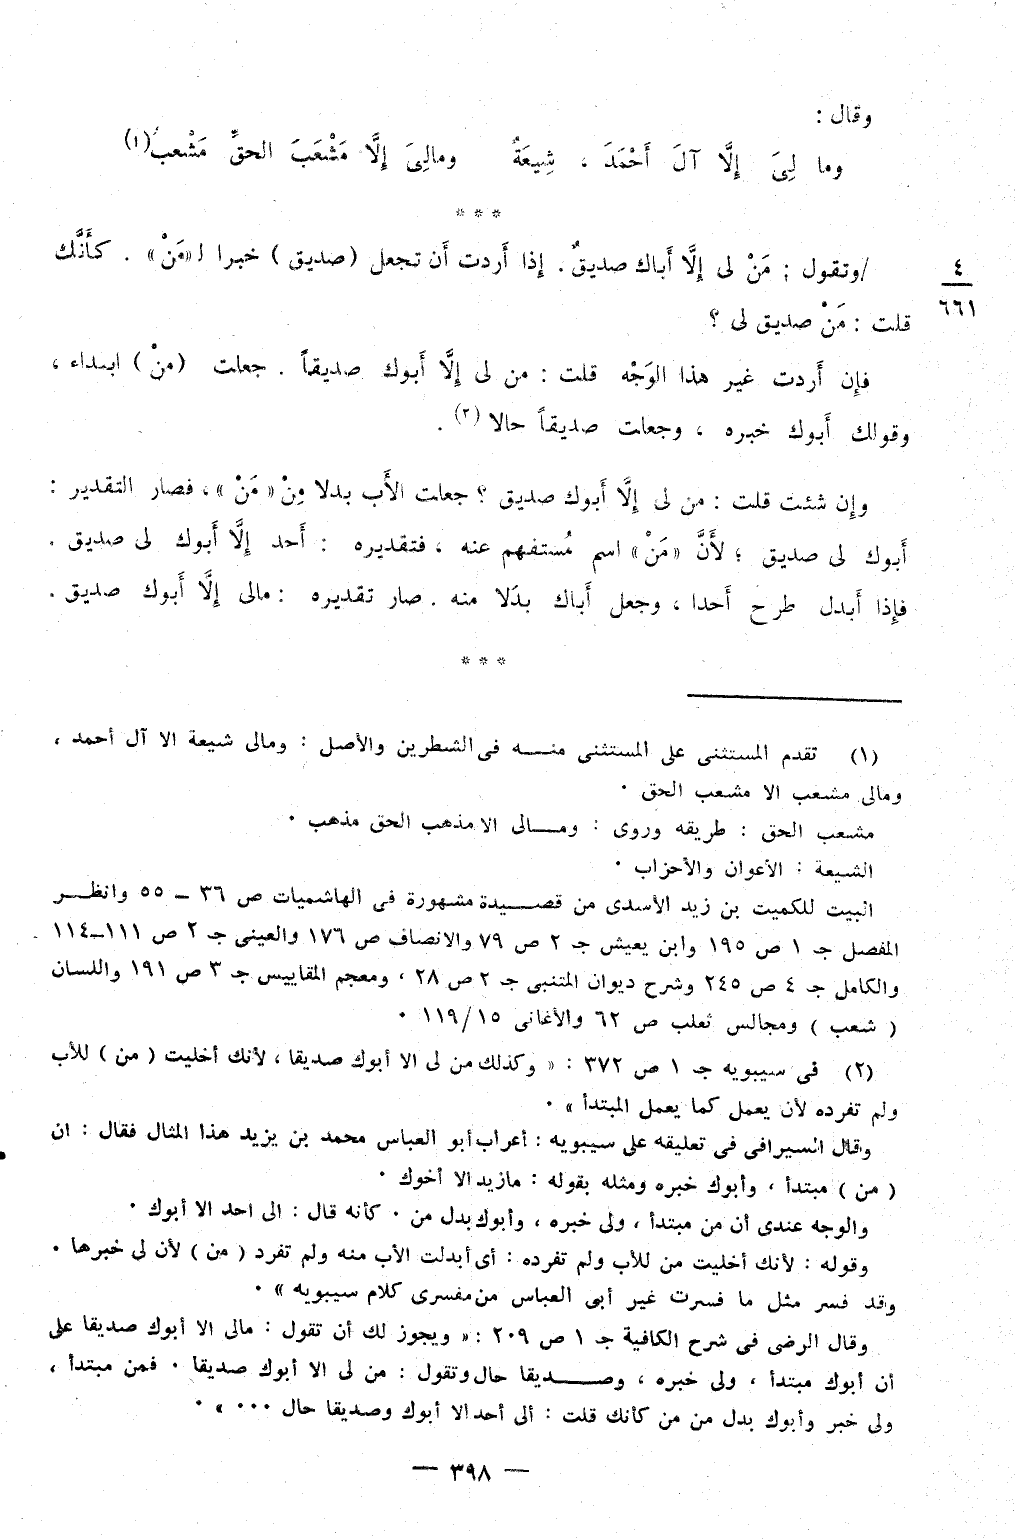 وقال :
وما لِىَ إِلَّا آلَ أَحْمَدَ ، شِيعَةٌ ومالِىَ إِلَّا مَشْعَبَ الحقِّ مَشْعبُ(١)
* * *
/وتقول : مَنْ لى إِلَّا أَباك صديقٌ . إِذا أَردت أَن تجعل (صديق) خبرا لـ«مَنْ» . كأَنَّك
٤
٦٦١
قلت : مَنْ صديق لى ؟
فإِن أَردت غير هذا الوَجْه قلت : من لى إِلَّا أَبوك صديقاً . جعلت (منْ) ابتداء ،
وقولك أَبوك خبره ، وجعلت صديقاً حالا (٢) .
وإِن شئت قلت : من لى إِلَّا أَبوك صديق ؟ جعلت الأَب بدلا مِنْ « مَنْ » ، فصار التقدير :
أَبوك لى صديق ؛ لأَنَّ «مَنْ» اسم مُستفهم عنه ، فتقديره : أَحد إِلَّا أَبوك لى صديق .
فإِذا أَبدل طرح أَحدا ، وجعل أَباك بدَلا منه . صار تقديره : مالى إِلَّا أَبوك صديق .
* * *
(١) تقدم المستثنى على المستثنى منـــه فى الشطرين والأصل : ومالى شيعة الا آل أحمد ،
ومالى مشعب الا مشعب الحق ·
مشعب الحق : طريقه وروى : ومـــالى الا مذهب الحق مذهب ·
الشيعة : الأعوان والأحزاب ·
البيت للكميت بن زيد الأسدى من قصـــيدة مشهورة فى الهاشميات ص ٣٦ ــ ٥٥ وانظـــر
المفصل جـ ١ ص ١٩٥ وابن يعيش جـ ٢ ص ٧٩ والانصاف ص ١٧٦ والعينى جـ ٢ ص ١١١ــ١١٤
والكامل جـ ٤ ص ٢٤٥ وشرح ديوان المتنبى جـ ٢ ص ٢٨ ، ومعجم المقاييس جـ ٣ ص ١٩١ واللسان
( شعب ) ومجالس ثعلب ص ٦٢ والأغانى ١١٩/١٥ ·
(٢) فى سيبويه جـ ١ ص ٣٧٢ : « وكذلك من لى الا أبوك صديقا ، لأنك أخليت ( من ) للأب
ولم تفرده لأن يعمل كما يعمل المبتدأ » ·
وقال السيرافى فى تعليقه على سيبويه : أعراب أبو العباس محمد بن يزيد هذا المثال فقال : ان
( من ) مبتدأ ، وأبوك خبره ومثله بقوله : مازيد الا أخوك ·
والوجه عندى أن من مبتدأ ، ولى خبره ، وأبوك بدل من · كأنه قال : الى احد الا أبوك ·
وقوله : لأنك أخليت من للأب ولم تفرده : أى أبدلت الأب منه ولم تفرد ( من ) لأن لى خبرها ·
وقد فسر مثل ما فسرت غير أبى العباس من مفسرى كلام سيبويه » ·
وقال الرضى فى شرح الكافية جـ ١ ص ٢٠٩ : « ويجوز لك أن تقول : مالى الا أبوك صديقا على
أن أبوك مبتدأ ، ولى خبره ، وصـــديقا حال وتقول : من لى الا أبوك صديقا · فمن مبتدأ ،
ولى خبر وأبوك بدل من من كأنك قلت : ألى أحد الا أبوك وصديقا حال ··· » ·
— ٣٩٨ —